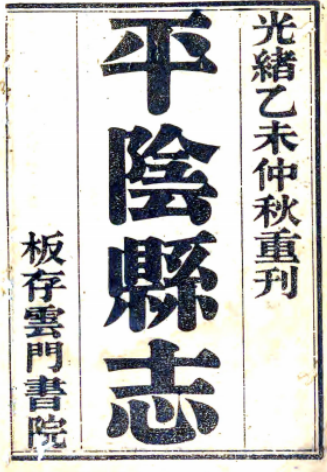 光緒乙未仲秋重刊
平陰縣志
板存雲門書院